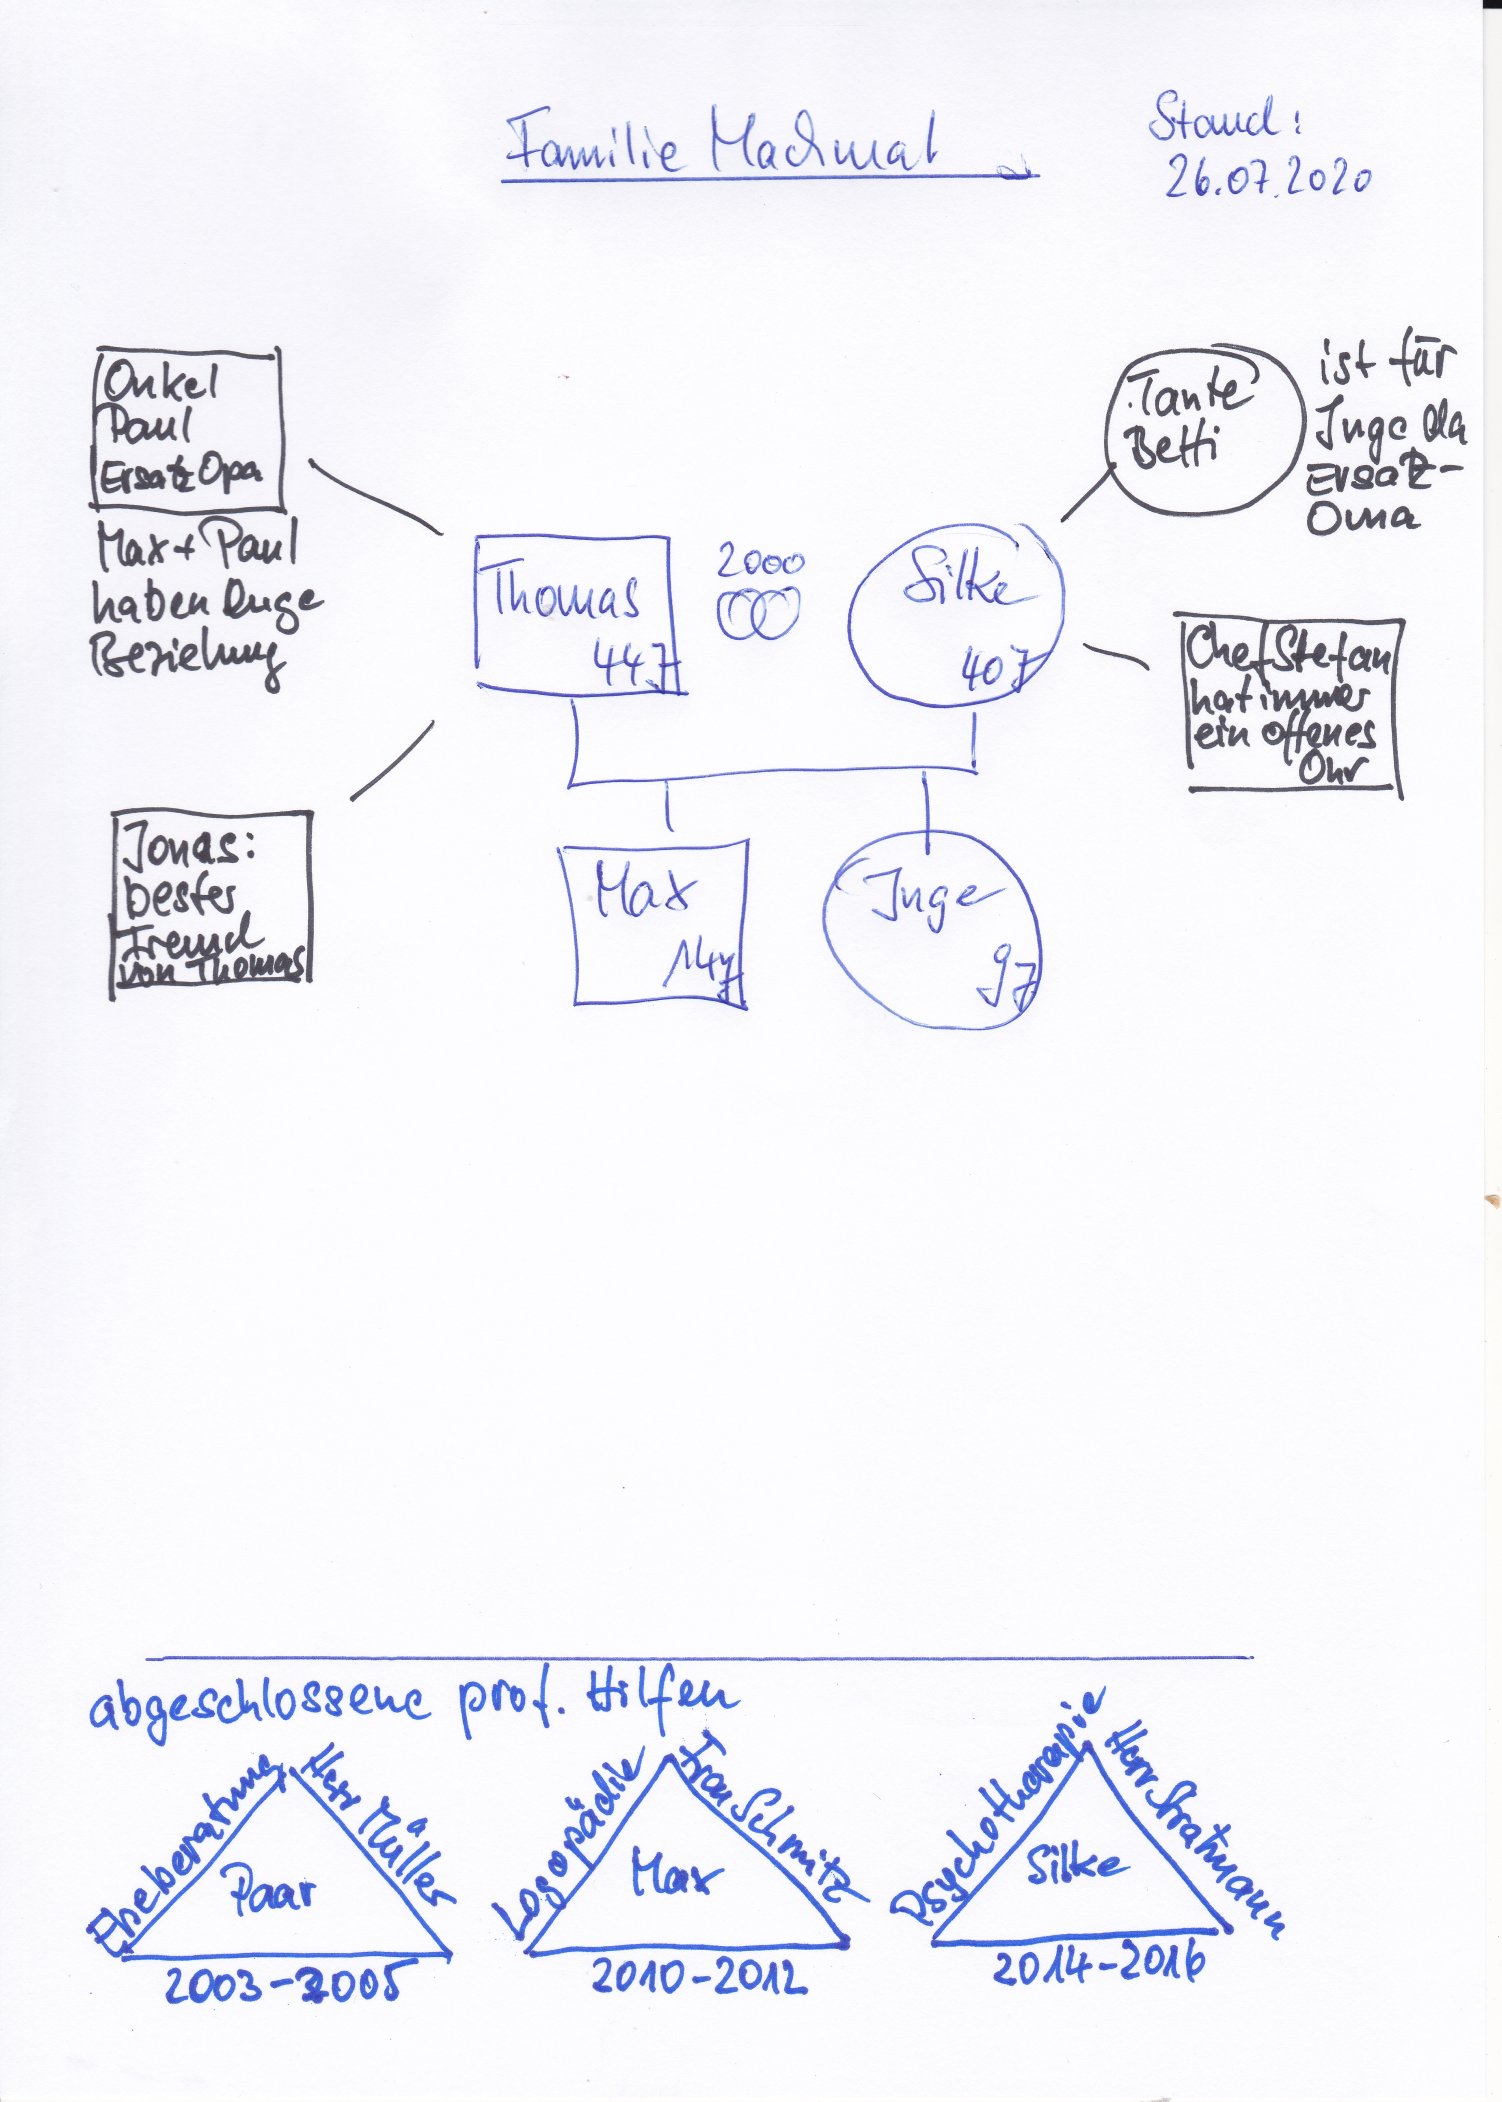 Familie Machmal
Stand:
26.07.2020
Onkel
Paul
Ersatz Opa
Max + Paul
haben enge
Beziehung
Tante
Betti
ist für
Inge da
Ersatz-
Oma
Thomas
44J
2000
Silke
40J
Chef Stefan
hat immer
ein offenes
Ohr
Jonas:
bester
Freund
von Thomas
Max
14J
Inge
9J
abgeschlossene prof. Hilfen
Eheberatung
Herr Müller
Paar
2003-2005
Logopädie
Frau Schmitz
Max
2010-2012
Psychotherapie
Herr Stratmann
Silke
2014-2016